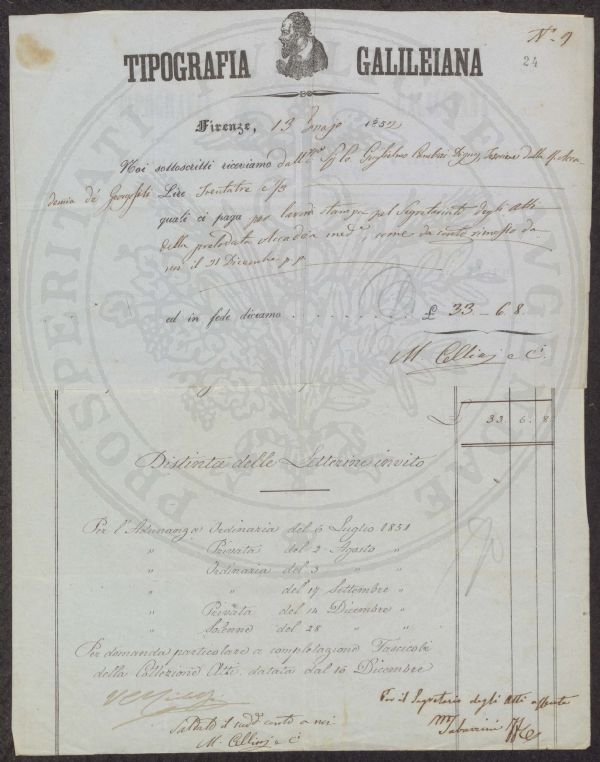 N.º 9
24
TIPOGRAFIA GALILEIANA
Firenze, 13 Genajo 1852
Noi sottoscritti riceviamo dall' Sig.
demia de' Georgofili Lire Trentatre e
quali ci paga per lavori stampa pel Segretariato degli Atti
della prelodata Accad.a med.a, come da conto rimesso da
noi il 31 Dicembre p.p.
ed in fede diciamo . . . . . . . . £ 33 - 6. 8.
M. Cellini e C.
33. 6. 8
Distinta delle Letterine invito
Per l'Adunanza Ordinaria del 6 Luglio 1851
" Privata del 2 Agosto "
" Ordinaria del 3 " "
" " del 17 Settembre "
" Privata del 14 Dicembre "
" Solenne del 28 " "
Per domanda particolare a completazione Fascicoli
della Collezione Atti, datata dal 16 Dicembre
Per il Segretario degli Atti assente
M Tabarrini
Saldato il sudd.o conto a noi
M. Cellini e C.
PROSPERITATI PUBLICAE AUGENDAE